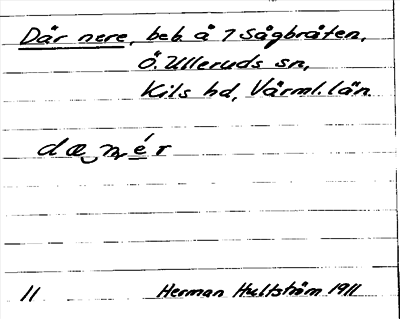 Där nere, beb. å 7 Sågbråten,
Ö. Ulleruds sn,
Kils hd, Värml. län
dæ n é r
11 Herman Hultström 1911